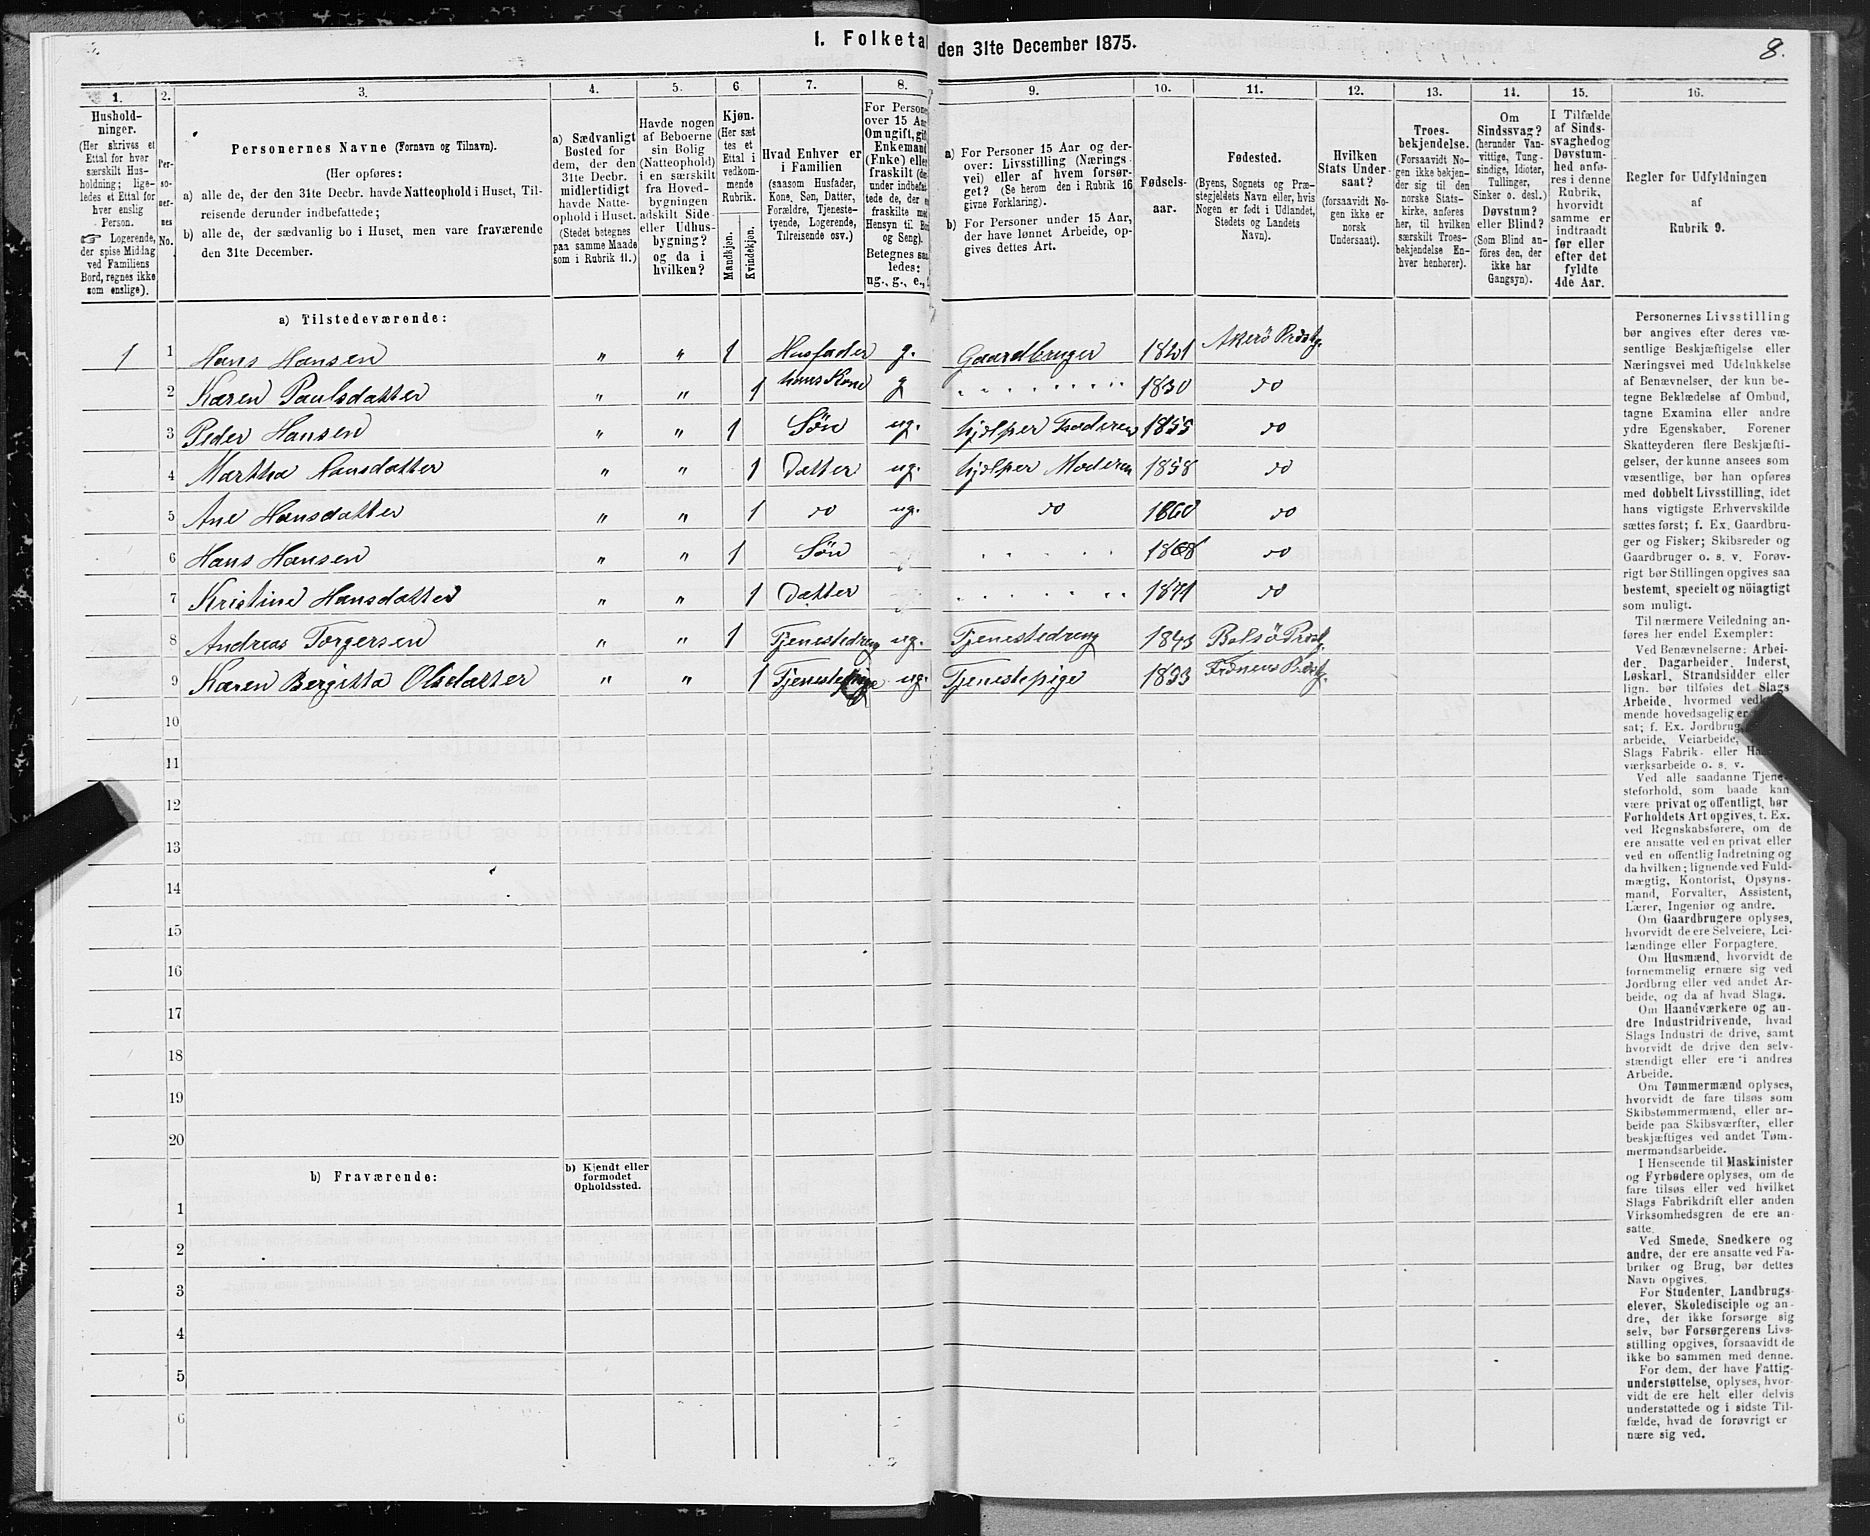 I. Folketal den 31te December 1875.
8.
1. 2. 3. 4. 5. 6 7. 8. 9. 10. 11. 12. 13. 14. 15. 16.
Hushold-
ninger.
(Her skrives et
Ettal for hver
særskilt Hus-
holdning; lige-
ledes et Ettal for
hver enslig
Person.
☞ Logerende,
der spise Middag
ved Familiens
Bord, regnes ikke
som enslige).
Per-
so-
ner-
nes
No.
Personernes Navne (Fornavn og Tilnavn).
(Her opføres:
a) alle de, der den 31te Decbr. havde Natteophold i Huset, Til-
reisende derunder indbefattede;
b) alle de, der sædvanlig bo i Huset, men vare fraværende
den 31te December.
a) Sædvanligt
Bosted for
dem, der den
31te Decbr.
midlertidigt
havde Natte-
ophold i Huset.
(Stedet betegnes
paa samme Maade
som i Rubrik 11.)
Havde nogen
af Beboerne
sin Bolig
(Natteophold)
i en særskilt
fra Hoved-
bygningen
adskilt Side-
eller Udhus-
bygning?
og da i
hvilken?
Kjøn.
(Her sæt-
tes et
Ettal i
vedkom-
mende
Rubrik.
Mandkjøn.
Kvindekjøn.
Hvad Enhver er
i Familien
(saasom Husfader,
Kone, Søn, Datter,
Forældre, Tjeneste-
tyende, Logerende,
Tilreisende osv.)
For Persone
over 15 Aar
Om ugift, gif
Enkemand
(Enke) elle
fraskilt (de
under indbefat
tede de, der e
fraskilte med
Hensyn til Bo
og Seng).
Betegnes saa
ledes:
ug., g., e.,
a) For Personer 15 Aar og der-
over: Livsstilling (Nærings-
vei) eller af hvem forsør-
get? (Se herom den i Rubrik 16
givne Forklaring).
b) For Personer under 15 Aar,
der have lønnet Arbeide, op-
gives dettes Art.
Fødsels-
aar.
Fødested.
(Byens, Sognets og Præ-
stegjeldets Navn eller, hvis
Nogen er født i Udlandet,
Stedets og Landets
Navn).
Hvilken
Stats Under-
saat?
(forsaavidt No-
gen ikke er
norsk
Undersaat).
Troes-
bekjendelse.
(Forsaavidt No-
gen ikke bekjen-
der sig til den
norske Stats-
kirke, anføres
her, til hvilken
særskilt Troes-
bekjendelse En-
hver henhører).
Om
Sindssvag?
(herunder Van-
vittige, Tung-
sindige, Idioter,
Tullinger,
Sinker o. desl.)
Døvstum?
eller Blind?
(Som Blind an-
föres den, der
ikke har
Gangsyn).
I Tilfælde
af Sinds-
svaghed og
Døvstum-
hed anfø-
res i denne
Rubrik,
hvorvidt
samme er
indtraadt
før eller
efter det
fyldte
4de Aar.
Regler for Udfyldningen
af
Rubrik 9.
a) Tilstedeværende:
1 1 Hans Hansen " " 1 Husfader g. Gaardbruger 1821 Akerö Prästg.
2 Karen Paulsdatter " " 1 hans Kone g 1830 do
3 Peder Hansen " " 1 Søn ug. hjelper Faderen 1855 do
4 Martha Hansdatter " " 1 Datter ug. hjelper Moderen 1858 do
5 Ane Hansdatter " " 1 do ug. do 1860 do
6 Hans Hansen " " 1 Søn 1868 do
7 Kristine Hansdatter " " 1 Datter 1871 do
8 Andreas Torgersen " " 1 Tjenestedreng ug. Tjenestedreng 1843 Bolsö Præst.
9 Karen Bergitta Olsdatter " " 1 Tjenestepige ug. Tjenestepige 1833 Prästg.
10
11
12
13
14
15
16
17
18
19
20
b) Fraværende:
b) Kjendt eller
formodet
Opholdssted.
1
2
3
4
5
6
Personernes Livsstilling
bør angives efter deres væ-
sentlige Beskjæftigelse eller
Næringsvei med Udelukkelse
af Benævnelser, der kun be-
tegne Beklædelse af Ombud,
tagne Examina eller andre
ydre Egenskaber. Forener
Skatteyderen flere Beskjæfti-
gelser, der kunne ansees som
væsentlige, bør han opføres
med dobbelt Livsstilling, idet
hans vigtigste Erhvervskilde
sættes først; f. Ex. Gaardbru-
ger og Fisker; Skibsreder og
Gaardbruger o. s. v. Forøv-
rigt bør Stillingen opgives saa
bestemt, specielt og nöiagtigt
som muligt.
Til nærmere Veiledning an-
føres her endel Exempler:
Ved Benævnelserne: Arbei-
der, Dagarbeider, Inderst,
Løskarl, Strandsidder eller
lign. bør tilføies det Slags
Arbeide, hvormed vedk
mende hovedsagelig er
sat; f. Ex. Jordbrug,
arbeide, Veiarbeide,
Slags Fabrik- eller Ha
værksarbeide o. s. v.
Ved alle saadanne Tjene-
steforhold, som baade kan
være privat og offentligt, bør
Forholdets Art opgives, t. Ex.
ved Regnskabsførere, om de
ere ansatte ved en privat eller
ved en offentlig Indretning og
da hvilken; lignende ved Fuld-
mægtig, Kontorist, Opsyns-
mand, Forvalter, Assistent,
Lærer, Ingeniør og andre.
Om Gaardbrugere oplyses,
hvorvidt de ere Selveiere, Lei-
lændinge eller Forpagtere.
Om Husmænd, hvorvidt de
fornemmelig ernære sig ved
Jordbrug eller ved andet Ar-
beide, og da af hvad Slags.
Om Haandværkere og an-
dre Industridrivende, hvad
Slags Industri de drive, samt
hvorvidt de drive den selv-
stændigt eller ere i andres
Arbeide.
Om Tømmermænd oplyses,
hvorvidt de fare tilsøs som
Skibstømmermænd, eller ar-
beide paa Skibsværfter, eller
beskjæftiges ved andet Tøm-
mermandsarbeide.
I Henseende til Maskinister
og Fyrbødere oplyses, om de
fare tilsøs eller ved hvilket
Slags Fabrikdrift eller anden
Virksomhedsgren de ere an-
satte.
Ved Smede, Snedkere og
andre, der ere ansatte ved Fa-
briker og Brug, bør dettes
Navn opgives.
For Studenter, Landbrugs-
elever, Skoledisciple og an-
dre, der ikke forsørge sig
selv, bør Forsørgerens Livs-
stilling opgives, forsaavidt de
ikke bo sammen med denne.
For dem, der have Fattig-
understøttelse, oplyses, hvor-
vidt de ere helt eller delvis
understøttede og i sidste Til-
fælde, hvad de forøvrigt er-
nære sig ved.